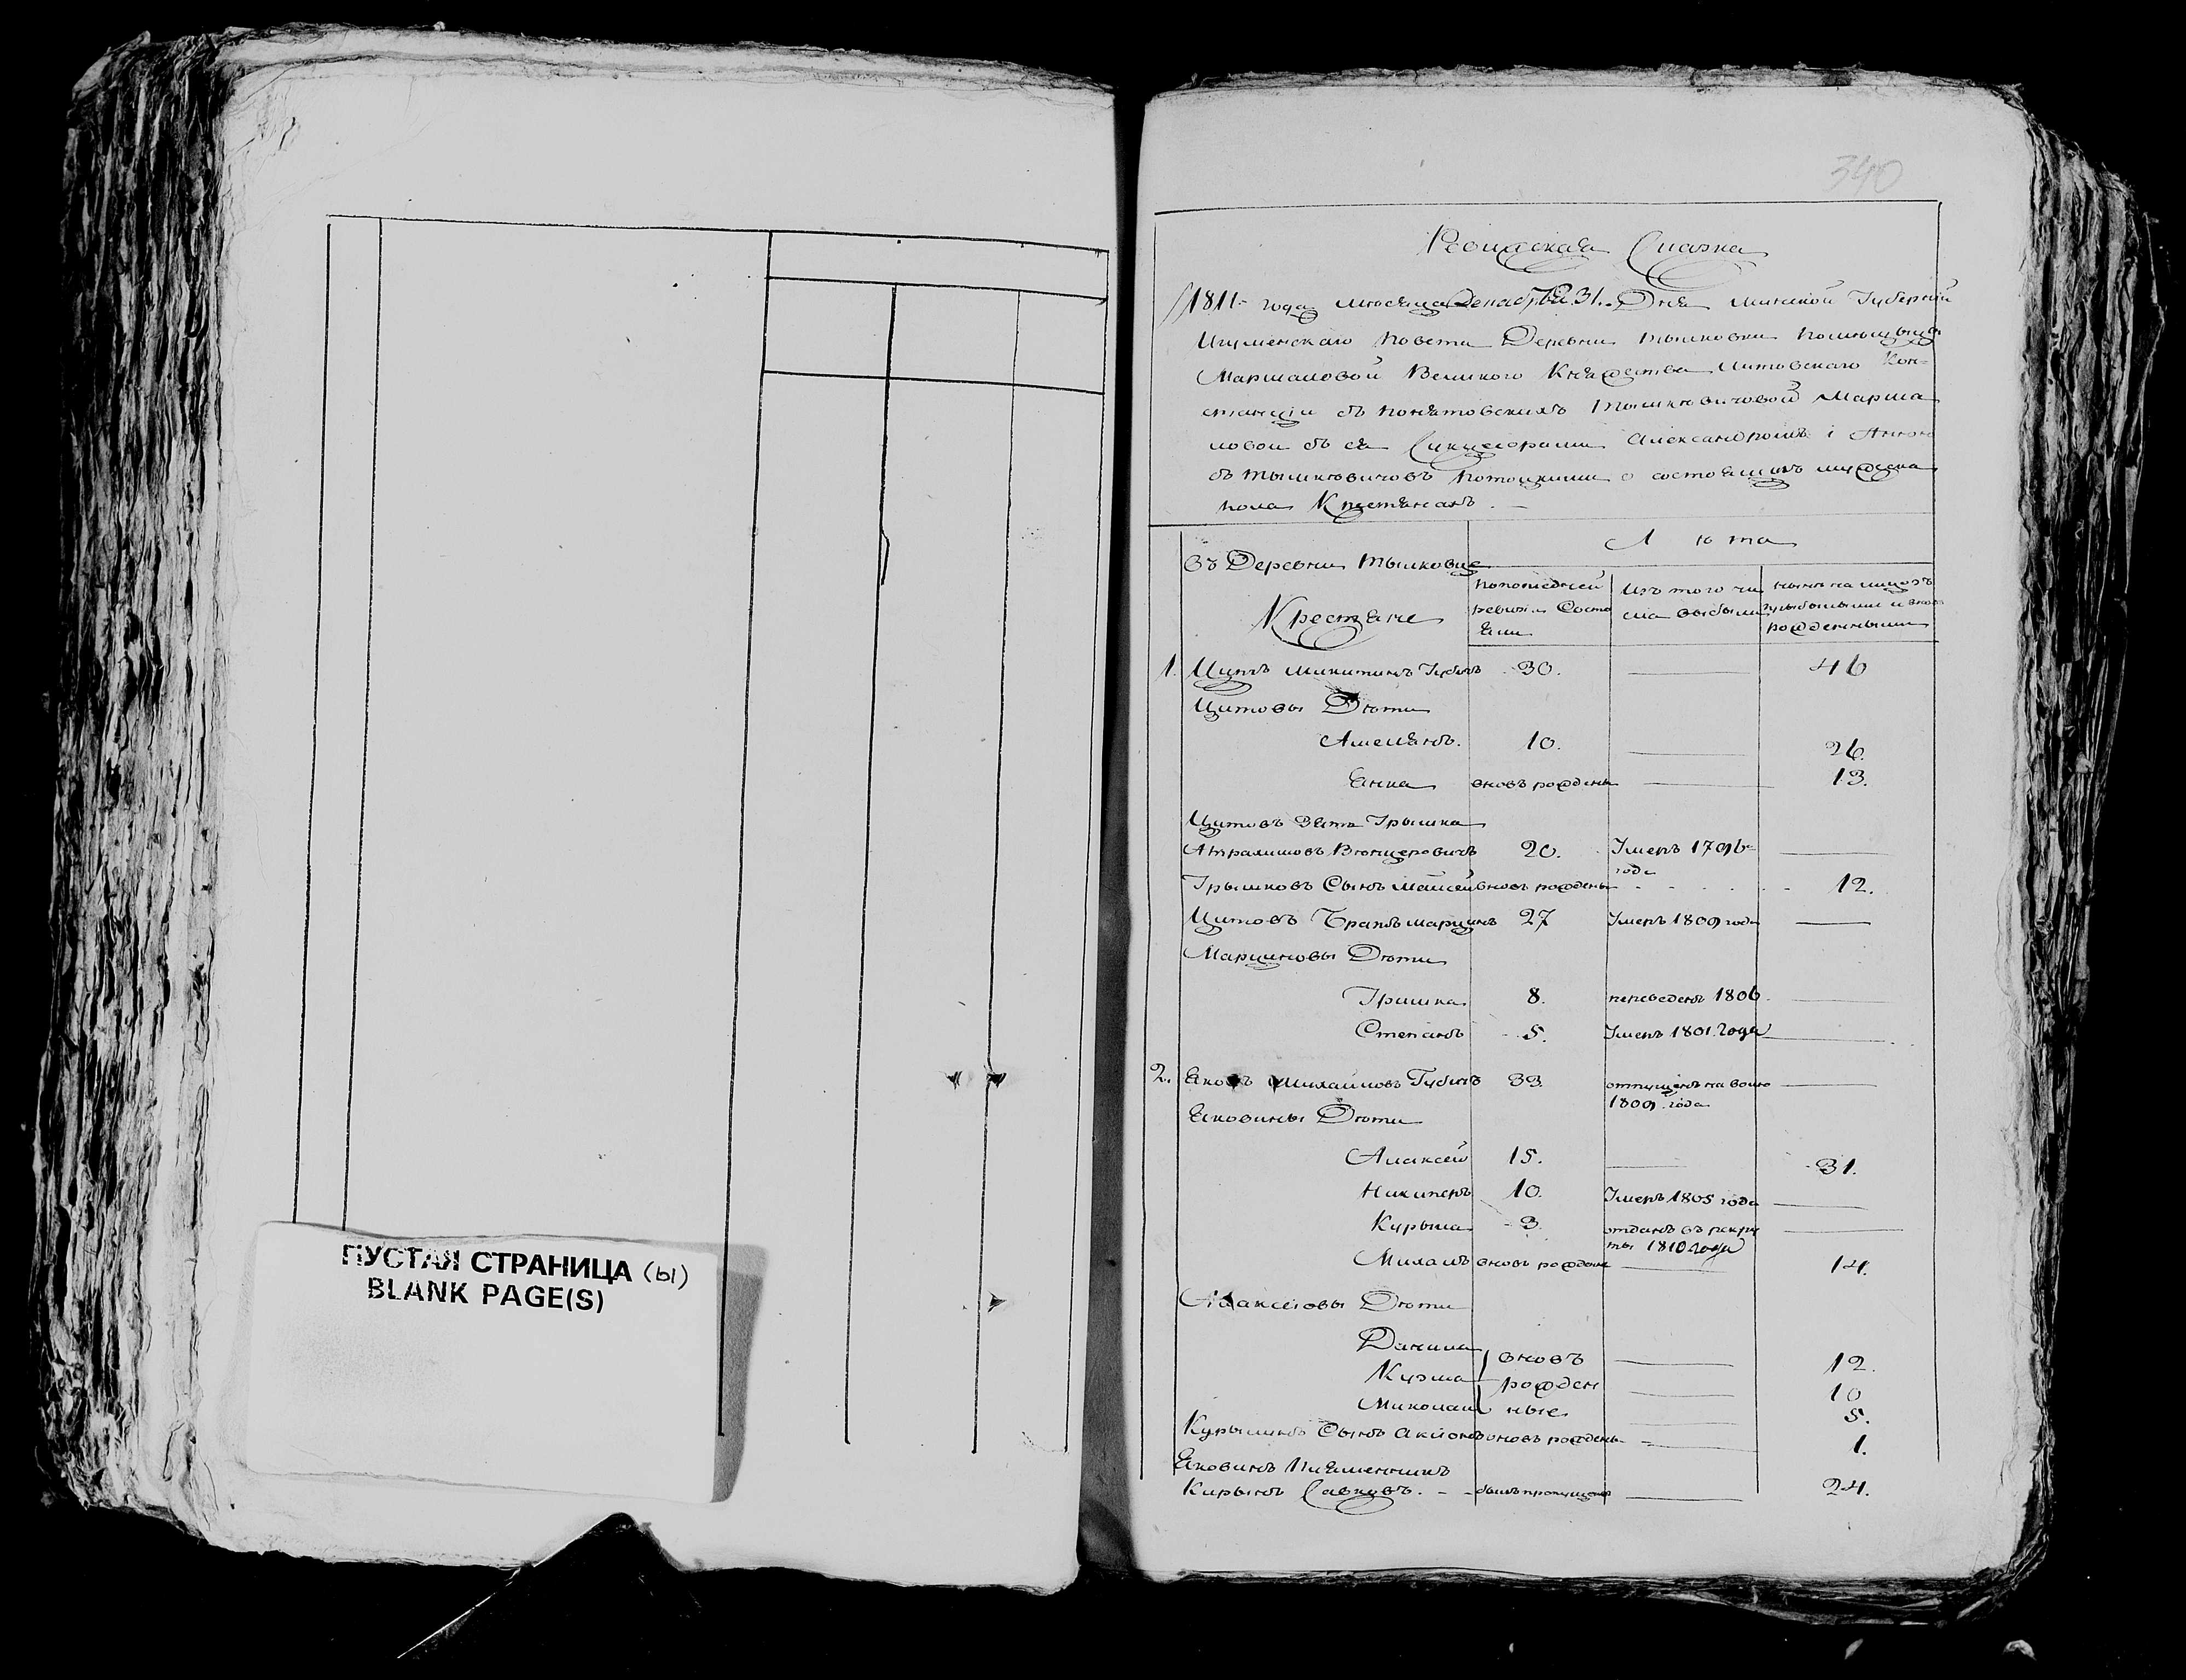 ПУСТАЯ СТРАНИЦА (ы)
BLANK PAGE(S)
340
Ревизская Сказка
1811 года месяца декабря 31. Дня Минской Губернии
Игуменскаго Повета Деревни Тышковки Помещицы
Маршаловой Великого Княжества Литовскаго Кон-
станции съ Понятовскихъ Тышкевичовой Марша
ловой съ ея Сукцесорами Александромъ і
съ Тышкевичовъ Потоцкими о состоящихъ мужеска
пола Крестянахъ.
Лета
въ Деревни Тышковце
Крестяне
По последней ревизіи Состояли
Изъ того числа выбыли
ныне на лицо съ прыбылыми и вновь рожденными
1. Цитъ Микитинъ Губинъ 30. — 46
Цитовы Дети
Амелянъ. 10. — 26.
Янка вновъ рожденъ — 13.
Цитовъ Зять Грышка
20. Умеръ 1796 года —
Грышковъ Сынъ Майсей вновъ рожденъ - - - - 12.
Цитовъ Братъ Марцинъ 27 Умеръ 1809 года —
Марциновы Дети
Гришка 8. переведенъ 1806. —
Степанъ 5. Умеръ 1801. Года —
2. Яковъ Михайловъ Губинъ 33. отпущенъ на волю 1809. года —
Яковины Дети
Алаксей 15. — 31.
Никиперъ 10. Умеръ 1805 года —
Курыла 3. отданъ въ рекруты 1810. года —
Михалъ вновъ рожденъ — 14.
Алаксеіовы Дети
Данила вновъ — 12.
Кузма рожден — 10
Миколай ные — 5.
Курылинъ Сынъ вновъ рожденъ — 1.
Яковинъ Племенникъ
Кирыло Савковъ. - - былъ пропущенъ — 24.